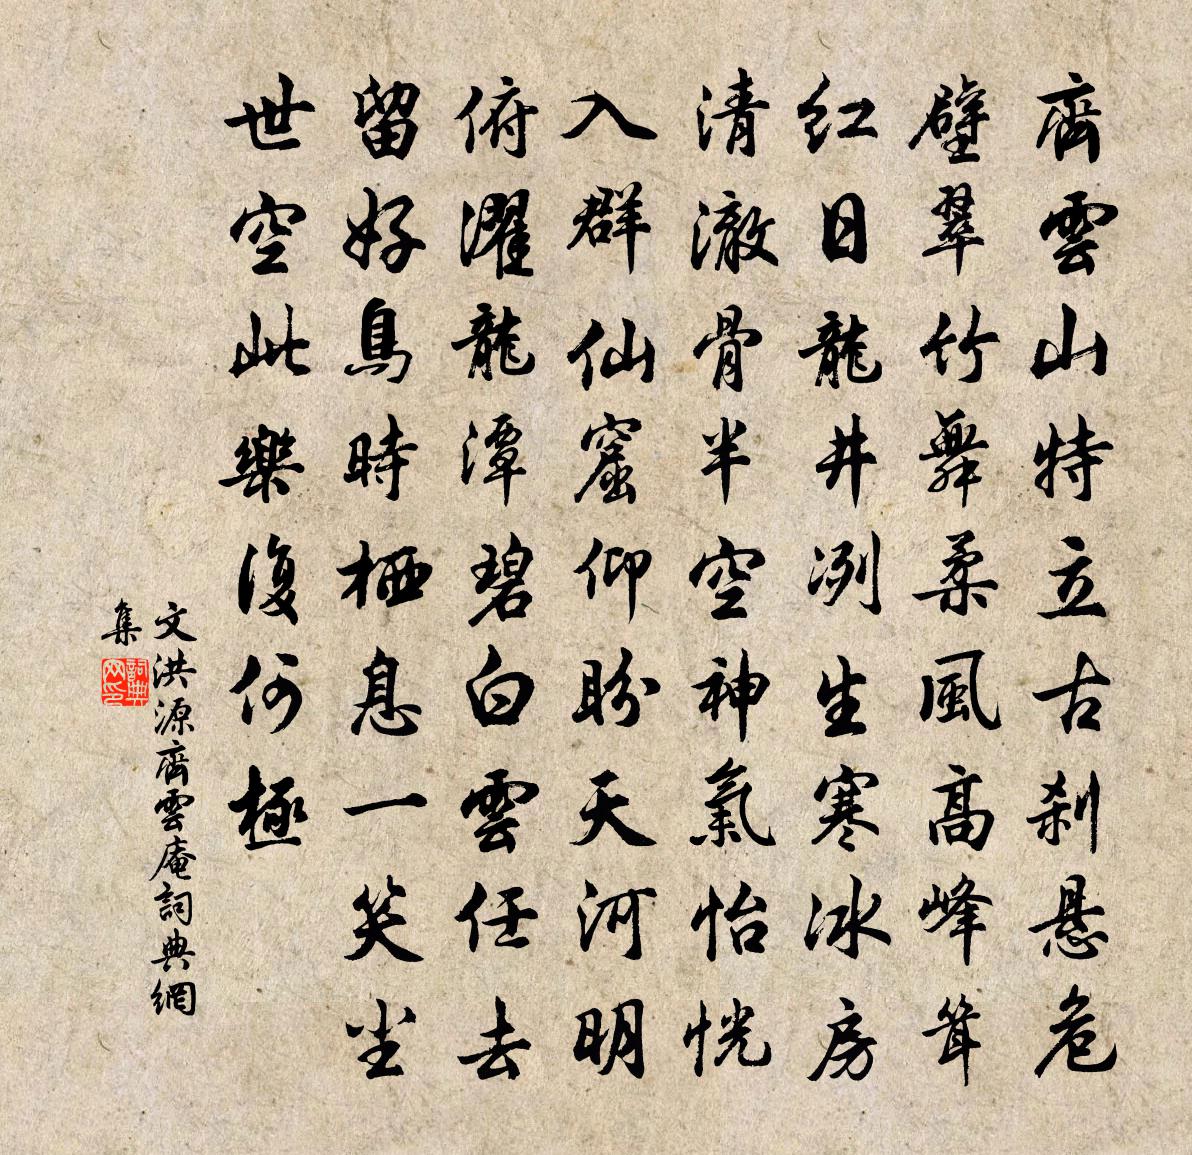 齊雲山特立古刹悬危
壁翠竹舞柔風高峰耸
红日龍井冽生寒冰房
清澈骨半空神氣怡恍
入群仙窟仰盼天河明
俯濯龍潭碧白雲任去
留好鳥時栖息一笑尘
世空此樂復何極
文洪源齊雲庵詞典網
集
詞典网印